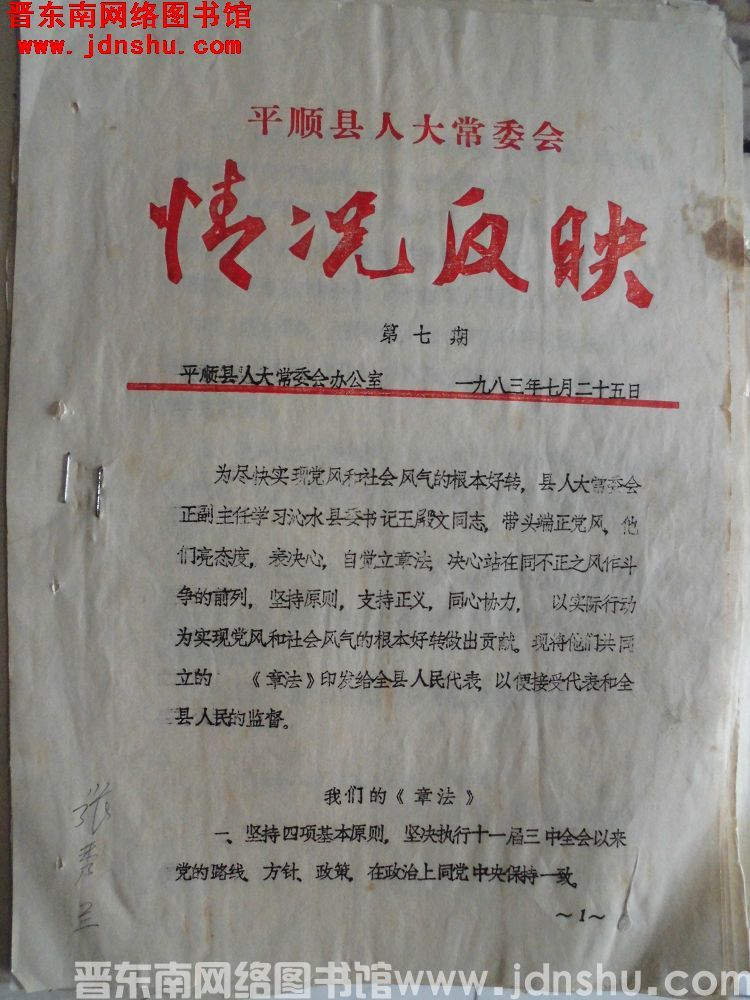 晋东南网络图书馆
www.jdnshu.com
平顺县人大常委会
情况反映
第七期
平顺县人大常委会办公室 一九八三年七月二十五日
为尽快实现党风和社会风气的根本好转，县人大常委会
正副主任学习沁水县委书记王殿文同志，带头端正党风，他
们亮态度，表决心，自觉立章法，决心站在同不正之风作斗
争的前列，坚持原则，支持正义，同心协力， 以实际行动
为实现党风和社会风气的根本好转做出贡献。现将他们共同
立的 《章法》印发给全县人民代表，以便接受代表和全
县人民的监督。
我们的《章法》
一、坚持四项基本原则，坚决执行十一届三中全会以来
党的路线、方针、政策，在政治上同党中央保持一致。
～1～
张秀兰
晋东南网络图书馆www.jdnshu.com